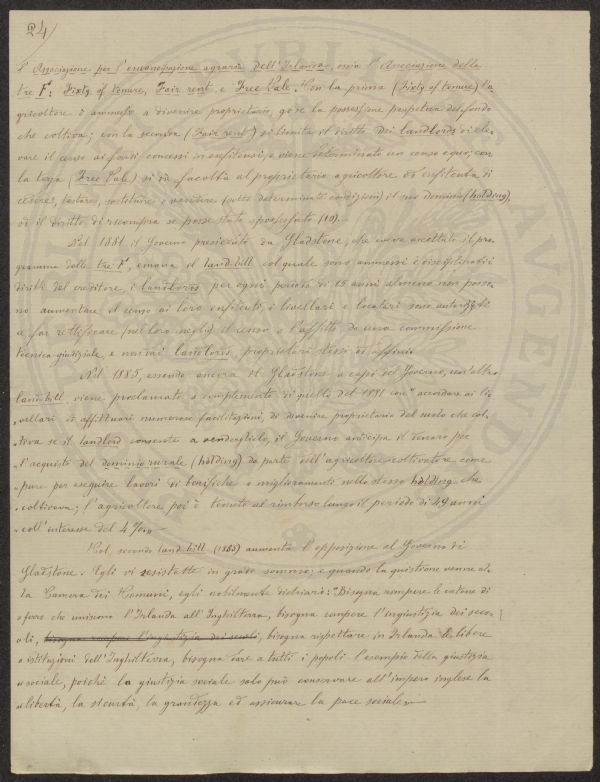 24
L'Associazione per l'emancipazione agraria dell'Irlanda, ossia l'Associazione delle
tre F: Fixty of tenure, Fair rent, e Free Sale. Con la prima (Fixty of tenure) l'a
gricoltore è ammesso a divenire proprietario, gode la possessione perpetua del fondo
che coltiva; con la seconda (Fair rent) si limita il diritto dei landlords di ele-
vare il censo ai fondi concessi in enfiteusi, e viene determinato un censo equo; con
la terza (Free Sale) si dà facoltà al proprietario agricoltore od enfiteuta di
cedere, testare, sostituire o vendere (sotto determinate condizioni) il suo dominio (holding),
od il diritto di ricompra se fosse stato spossessato (10).
Nel 1881 il Governo presieduto da Gladstone, che aveva accettato il pro-
gramma delle tre F, emana il land-bill col quale sono ammessi e disciplinati i
diritti del creditore, i landlords per ogni periodo di 15 anni almeno non posso-
no aumentare il censo ai loro enfiteuti, i livellari e locatari sono autorizzati
a far rettificare (nel loro meglio) il censo o l'affitto da una commissione
tecnica-giudiziale, e non dai landlords, proprietari stessi
Nel 1885, essendo ancora il Gladstone a capo del Governo, un'altro
landbill viene proclamato a complemento di quello del 1881 con "accordare ai li-
"vellari od affittuari numerose facilitazioni, di divenire proprietario del suolo che col-
"tiva se il landlord consente a venderglielo, il Governo anticipa il denaro per
"l'acquisto del dominio rurale (holding) da parte dell'agricoltore coltivatore come
"pure per eseguire lavori di bonifiche o miglioramenti nello stesso holding che
"coltivava; l'agricoltore poi è tenuto al rimborso lungo il periodo di 49 anni
"coll'interesse del 4 %."
Col secondo land bill (1885) aumentò l'opposizione al Governo di
Gladstone. Egli vi resistette in grado sommo; e quando la quistione venne al-
la Camera dei Comuni, egli nobilmente dichiarò: "Bisogna rompere le catene di
"ferro che uniscono l'Irlanda all'Inghilterra, bisogna rompere l'ingiustizia dei seco-
"li, bisogna rompere l'ingiustizia dei secoli, bisogna rispettare in Irlanda le libere
"istituzioni dell'Inghilterra, bisogna dare a tutti i popoli l'esempio della giustizia
"sociale, poichè la giustizia sociale solo può conservare all'impero inglese la
"libertà, la sicurtà, la grandezza ed assicurare la pace sociale"